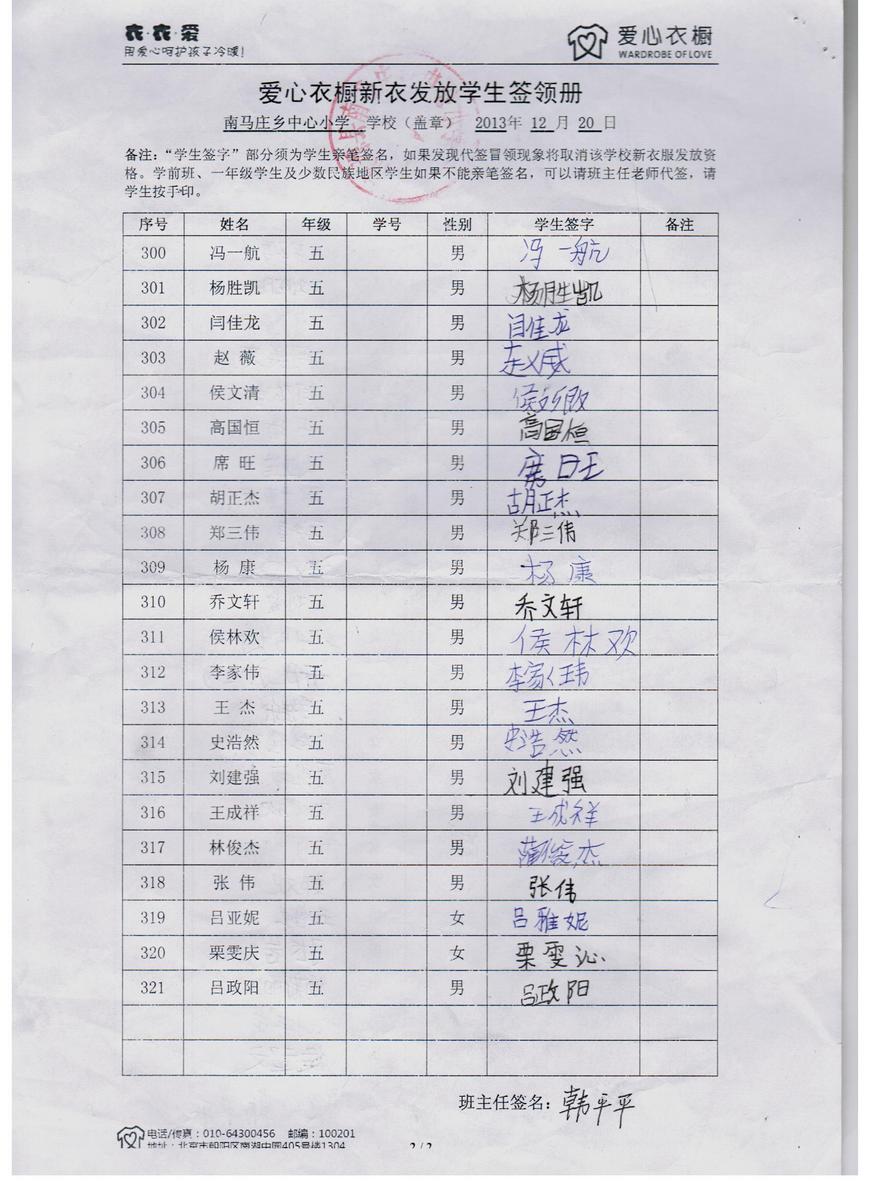 衣·衣·爱
用爱心呵护孩子冷暖!
爱心衣橱
WARDROBE OF LOVE
爱心衣橱新衣发放学生签领册
南马庄乡中心小学 学校（盖章） 2013年 12 月 20 日
备注：“学生签字”部分须为学生亲笔签名，如果发现代签冒领现象将取消该学校新衣服发放资
格。学前班、一年级学生及少数民族地区学生如果不能亲笔签名，可以请班主任老师代签，请
学生按手印。
序号 姓名 年级 学号 性别 学生签字 备注
300 冯一航 五 男 冯一航
301 杨胜凯 五 男 杨胜凯
302 闫佳龙 五 男 闫佳龙
303 赵 薇 五 男 赵威
304 侯文清 五 男
305 高国恒 五 男 高国恒
306 席 旺 五 男 席旺
307 胡正杰 五 男 胡正杰
308 郑三伟 五 男 郑三伟
309 杨 康 五 男 杨康
310 乔文轩 五 男 乔文轩
311 侯林欢 五 男 侯林欢
312 李家伟 五 男 李家伟
313 王 杰 五 男 王杰
314 史浩然 五 男 史浩然
315 刘建强 五 男 刘建强
316 王成祥 五 男 王成祥
317 林俊杰 五 男 俊杰
318 张 伟 五 男 张伟
319 吕亚妮 五 女 吕雅妮
320 栗雯庆 五 女 栗雯沁
321 吕政阳 五 男 吕政阳
班主任签名：韩平平
电话/传真：010-64300456 邮编：100201
地址：北京市朝阳区南湖中园405号楼1304
2 / 2